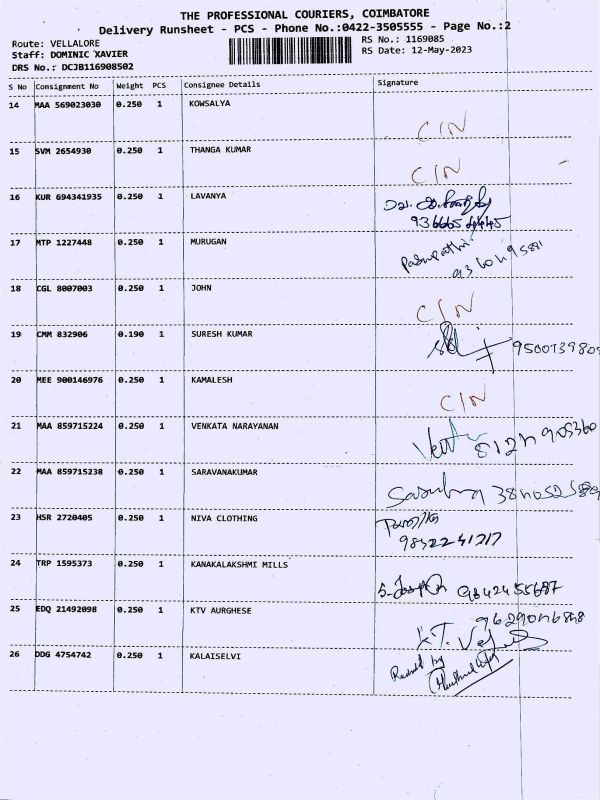 THE PROFESSIONAL COURIERS, COIMBATORE
Delivery Runsheet - PCS - Phone No.:0422-3505555 - Page No.:2
Route: VELLALORE
RS No.: 1169085
Staff: DOMINIC XAVIER
RS Date: 12-May-2023
DRS No.: DCJB116908502
S No Consignment No Weight PCS Consignee Details Signature
14 MAA 569023030 0.250 1 KOWSALYA
C/N
15 SVM 2654930 0.250 1 THANGA KUMAR
C/N
16 KUR 694341935 0.250 1 LAVANYA
17 MTP 1227448 0.250 1 MURUGAN
Pasupathi
18 CGL 8007003 0.250 1 JOHN
C/N
19 CMM 832906 0.190 1 SURESH KUMAR
20 MEE 900146976 0.250 1 KAMALESH
C/N
21 MAA 859715224 0.250 1 VENKATA NARAYANAN
22 MAA 859715238 0.250 1 SARAVANAKUMAR
23 HSR 2720405 0.250 1 NIVA CLOTHING
24 TRP 1595373 0.250 1 KANAKALAKSHMI MILLS
25 EDQ 21492098 0.250 1 KTV AURGHESE
26 DDG 4754742 0.250 1 KALAISELVI